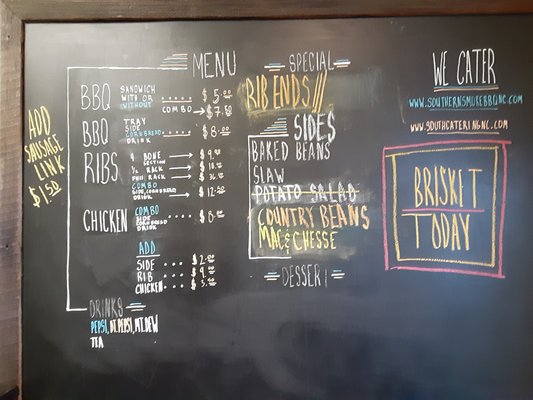 MENU
BBQ SANDWICH WITH OR WITHOUT .... $5.00
COMBO → $7.50
BBQ TRAY SIDE CORNBREAD DRINK .... $8.00
RIBS
4 BONE SECTION → $9
1/2 RACK →
FULL RACK →
COMBO SIDE, CORNBREAD DRINK → $12
CHICKEN COMBO SIDE CORNBREAD DRINK .... $8
ADD
SIDE ... $2.00
RIB ...
CHICKEN ...
DRINKS
PEPSI, DT.PEPSI, MT.DEW
TEA
ADD
SAUSAGE
LINK
$1.50
SPECIAL
RIB ENDS
SIDES
BAKED BEANS
SLAW
POTATO SALAD
COUNTRY BEANS
MAC & CHESSE
DESSERT
WE CATER
WWW.SOUTHERNSMOKEBBQNC.COM
WWW.SOUTHCATERINGNC.COM
BRISKET
TODAY